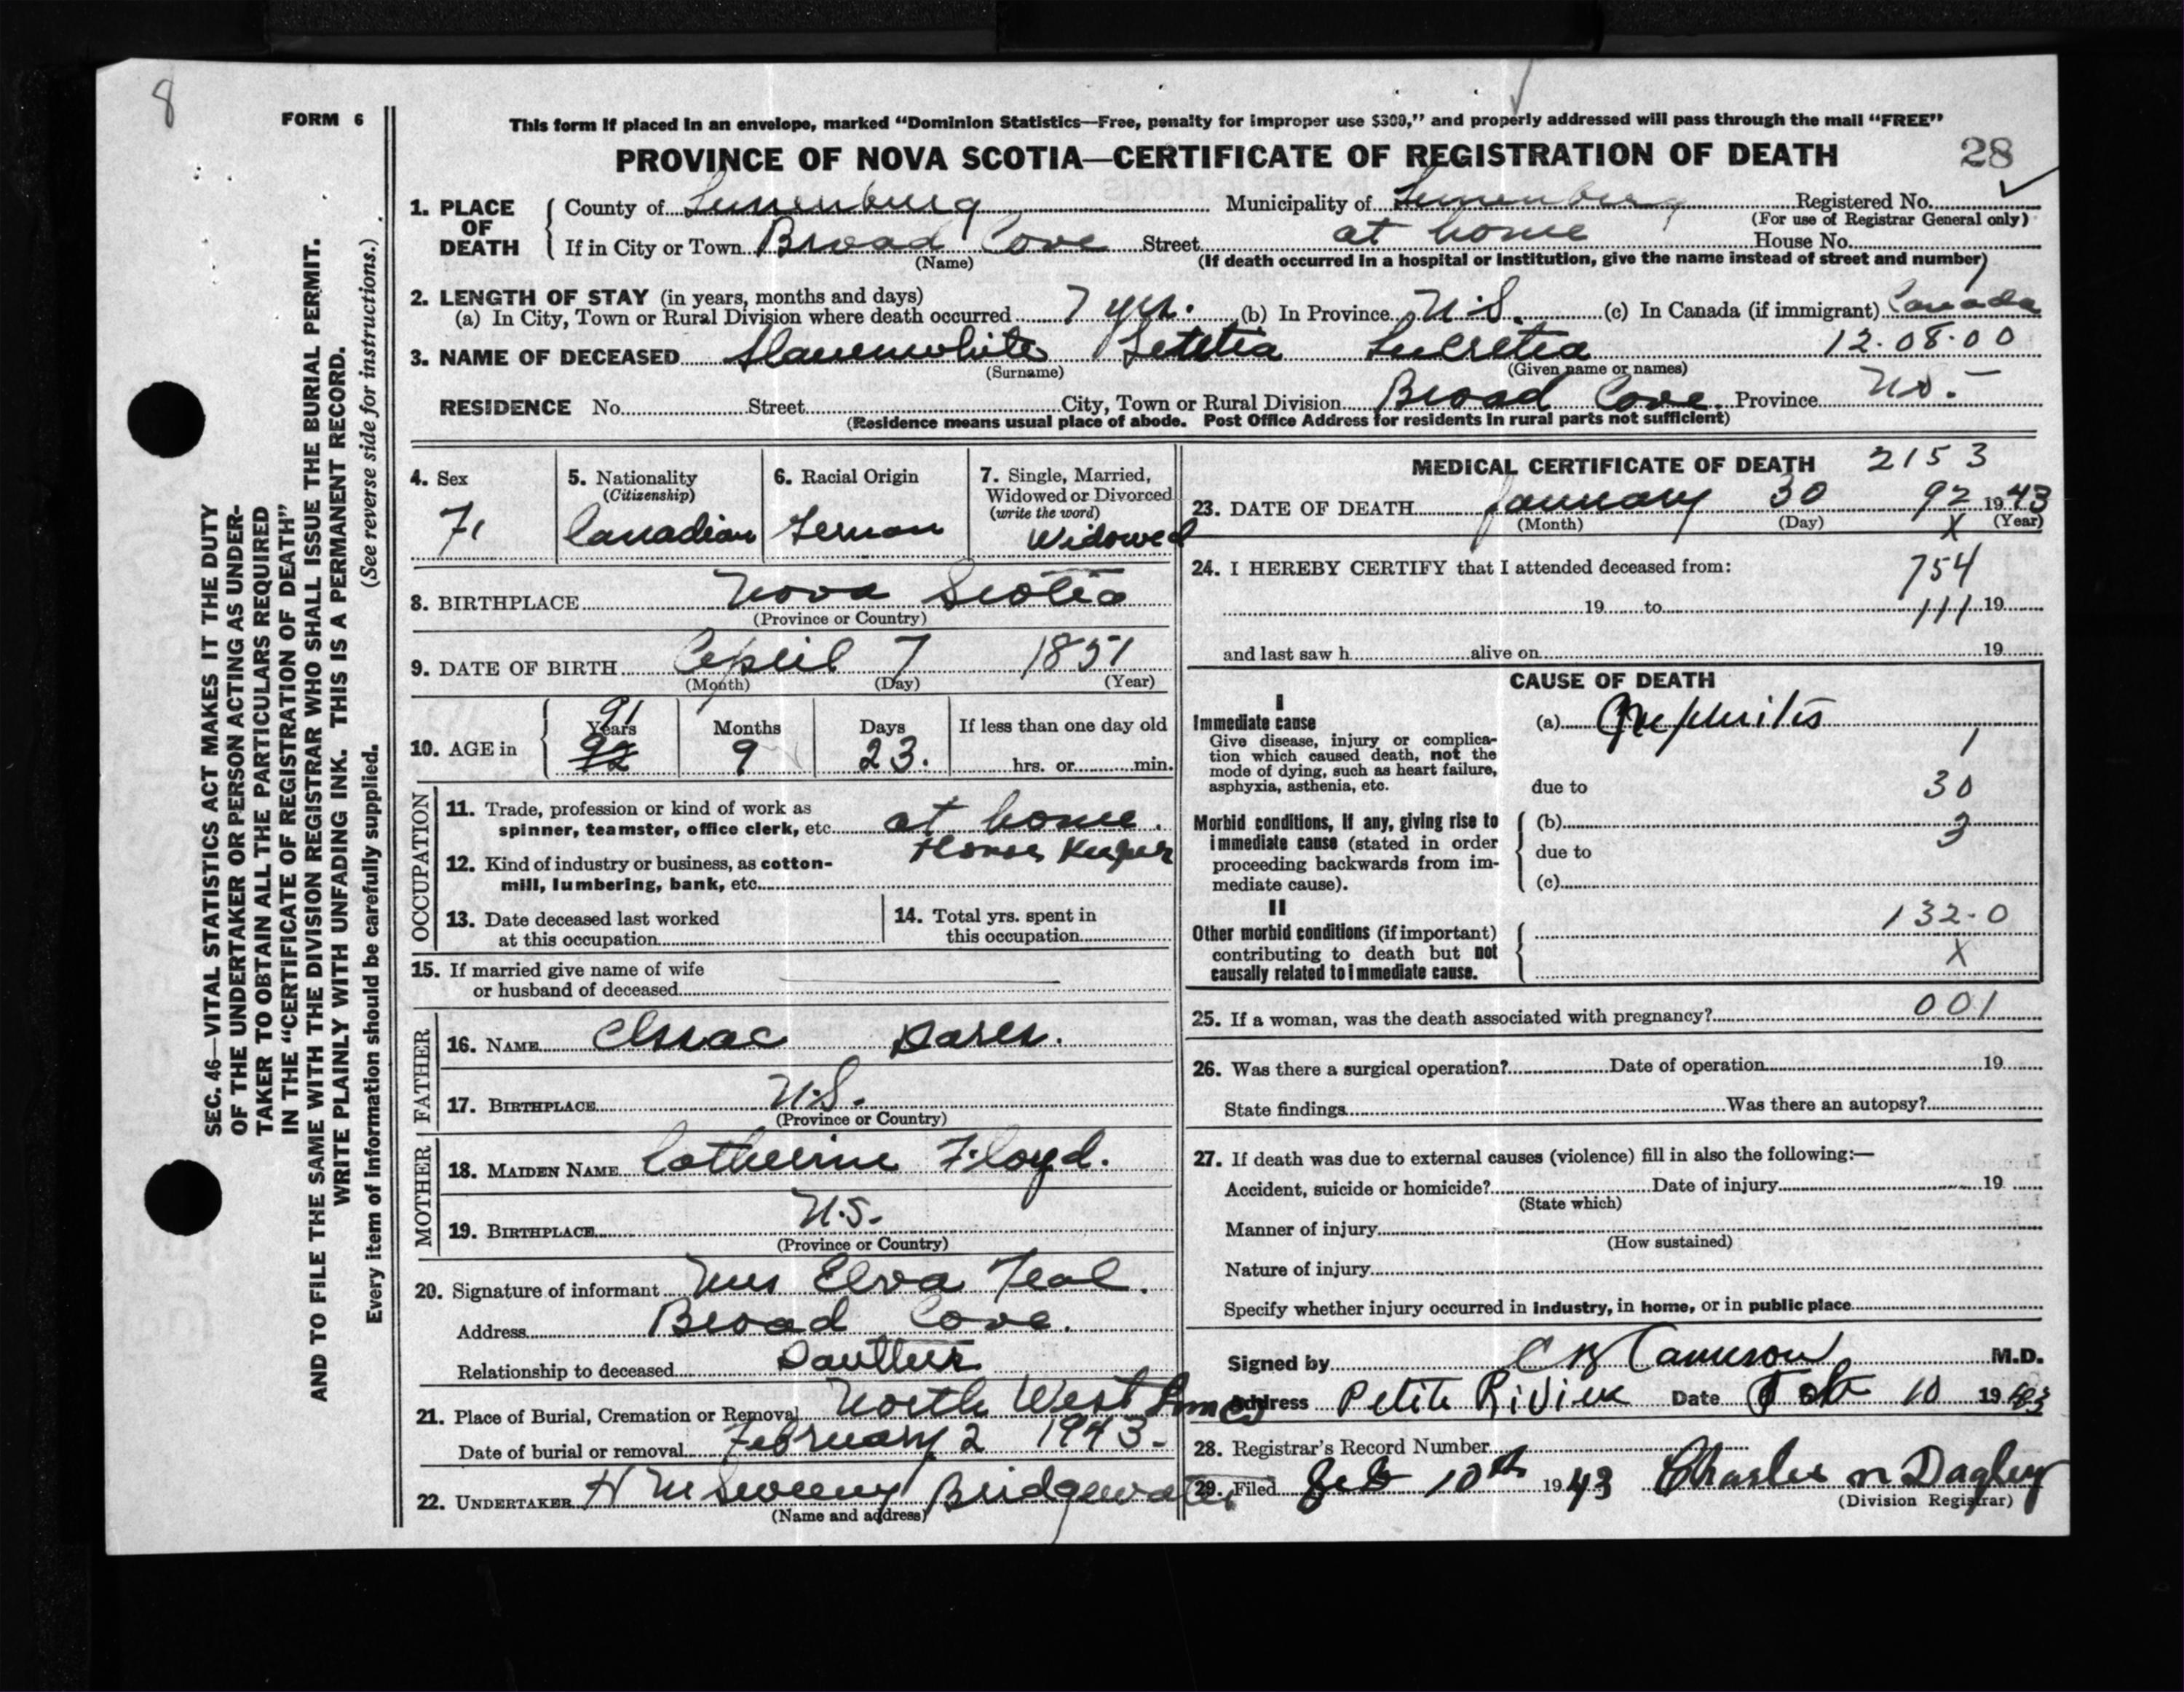 8
FORM 6
This form if placed in an envelope, marked “Dominion Statistics—Free, penalty for improper use $300,” and properly addressed will pass through the mail “FREE”
PROVINCE OF NOVA SCOTIA—CERTIFICATE OF REGISTRATION OF DEATH 28
SEC. 46—VITAL STATISTICS ACT MAKES IT THE DUTY
OF THE UNDERTAKER OR PERSON ACTING AS UNDER-
TAKER TO OBTAIN ALL THE PARTICULARS REQUIRED
IN THE “CERTIFICATE OF REGISTRATION OF DEATH”
AND TO FILE THE SAME WITH THE DIVISION REGISTRAR WHO SHALL ISSUE THE BURIAL PERMIT.
WRITE PLAINLY WITH UNFADING INK. THIS IS A PERMANENT RECORD.
Every item of information should be carefully supplied. (See reverse side for instructions.)
1. PLACE OF DEATH County of Lunenburg Municipality of Lunenburg Registered No.
(For use of Registrar General only)
If in City or Town Broad Cove Street at home House No.
(Name) (If death occurred in a hospital or institution, give the name instead of street and number)
2. LENGTH OF STAY (in years, months and days)
(a) In City, Town or Rural Division where death occurred 7 yrs. (b) In Province N.S. (c) In Canada (if immigrant) Canada
3. NAME OF DECEASED Slauenwhite Letetia Lucretia 12.08.00
(Surname) (Given name or names)
RESIDENCE No. Street City, Town or Rural Division Broad Cove. Province N.S.
(Residence means usual place of abode. Post Office Address for residents in rural parts not sufficient)
4. Sex F.
5. Nationality (Citizenship) Canadian
6. Racial Origin German
7. Single, Married, Widowed or Divorced (write the word) Widowed
8. BIRTHPLACE Nova Scotia
(Province or Country)
9. DATE OF BIRTH April 7 1851
(Month) (Day) (Year)
10. AGE in Years 91 92 Months 9 Days 23. If less than one day old hrs. or min.
OCCUPATION
11. Trade, profession or kind of work as
spinner, teamster, office clerk, etc. at home.
House Keeper
12. Kind of industry or business, as cotton-
mill, lumbering, bank, etc.
13. Date deceased last worked
at this occupation
14. Total yrs. spent in
this occupation
15. If married give name of wife
or husband of deceased
FATHER
16. NAME Issac Dares.
17. BIRTHPLACE N.S.
(Province or Country)
MOTHER
18. MAIDEN NAME Catherine Floyd.
19. BIRTHPLACE N.S.
(Province or Country)
20. Signature of informant Mrs Elva Teal.
Address Broad Cove.
Relationship to deceased Dauther
21. Place of Burial, Cremation or Removal North West
Date of burial or removal February 2 1943.
22. UNDERTAKER H M Sweeny Bridgewater
(Name and address)
MEDICAL CERTIFICATE OF DEATH 2153
23. DATE OF DEATH January 30 92 1943
(Month) (Day) X (Year)
24. I HEREBY CERTIFY that I attended deceased from: 754
19 to 111 19
and last saw h alive on 19
CAUSE OF DEATH
I
Immediate cause
Give disease, injury or complica-
tion which caused death, not the
mode of dying, such as heart failure,
asphyxia, asthenia, etc.
(a) Nephritis
1
due to 30
Morbid conditions, if any, giving rise to
immediate cause (stated in order
proceeding backwards from im-
mediate cause).
(b) 3
due to
(c)
II
Other morbid conditions (if important)
contributing to death but not
causally related to immediate cause.
132-0
X
25. If a woman, was the death associated with pregnancy? 001
26. Was there a surgical operation? Date of operation 19
State findings Was there an autopsy?
27. If death was due to external causes (violence) fill in also the following:—
Accident, suicide or homicide? Date of injury 19
(State which)
Manner of injury
(How sustained)
Nature of injury
Specify whether injury occurred in industry, in home, or in public place
Signed by Cameron M.D.
Address Petite Riviere Date Feb 10 1943
28. Registrar's Record Number
29. Filed Feb 10th 1943 Charles Dagley
(Division Registrar)